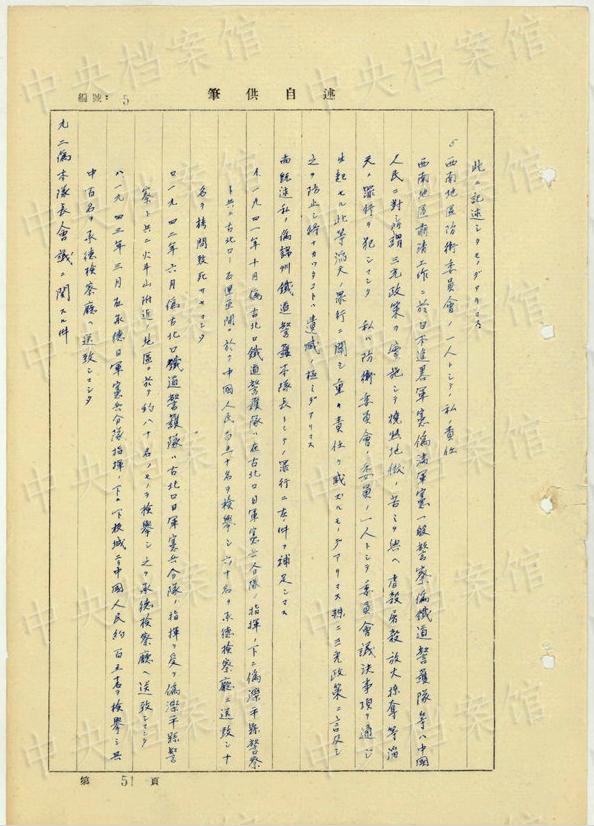 筆供自述
編號: 5
此ニ記述シタモノデアリマス
5 西南地區防衛委員會ノ一人トシテノ私ノ責任
西南地區肅清工作ニ於テ日本進畧軍憲偽満軍憲一般警察偽鐵道警護隊等ハ中國
人民ニ対シ所謂三光政策ヲ實施シテ燒熱地獄ノ苦シミヲ與ヘ虐殺屠殺放火掠奪等滔
天ノ罪行ヲ犯シマシタ 私ハ防衛委員會ノ委員ノ一人トシテ委員會議決事項ヲ通ジ
生起セル此等滔天ノ罪行ニ関シ重キ責任ヲ感ズルモノデアリマス 殊ニ三光政策ニ言及シ
之ヲ防止シ得ナカツタコトハ遺憾ノ極ミデアリマス
尚既述私ノ偽錦州鐵道警護本隊長トシテノ罪行ニ左ノ件ヲ補足シマス
イ一九四一年十月偽古北口鐵道警護隊ハ在古北口日軍憲兵分隊ノ指揮ノ下ニ偽灤平縣警察
ト共ニ古北口ー石匣里間ニ於テ中國人民百五十名ヲ檢擧シ六十名ヲ承德檢察廳ニ送致シ十
名ヲ拷問致死サセマシタ
ロ一九四二年六月偽古北口鐵道警護隊ハ古北口日軍憲兵分隊ノ指揮ヲ受ケ偽灤平縣警
察ト共ニ火斗山附近ノ地區ニ於テ約八十名ノモノヲ檢擧シ之ヲ承德檢察廳ヘ送致シマシタ
ハ一九四三年三月在承德日軍憲兵分隊指揮ノ下ニ下板城ニテ中國人民約百五名ヲ檢擧シ共
中百名ヲ承德檢察廳ヘ送致シマシタ
九二偽本隊長會議ニ関スル件
第 51 頁
中央档案馆